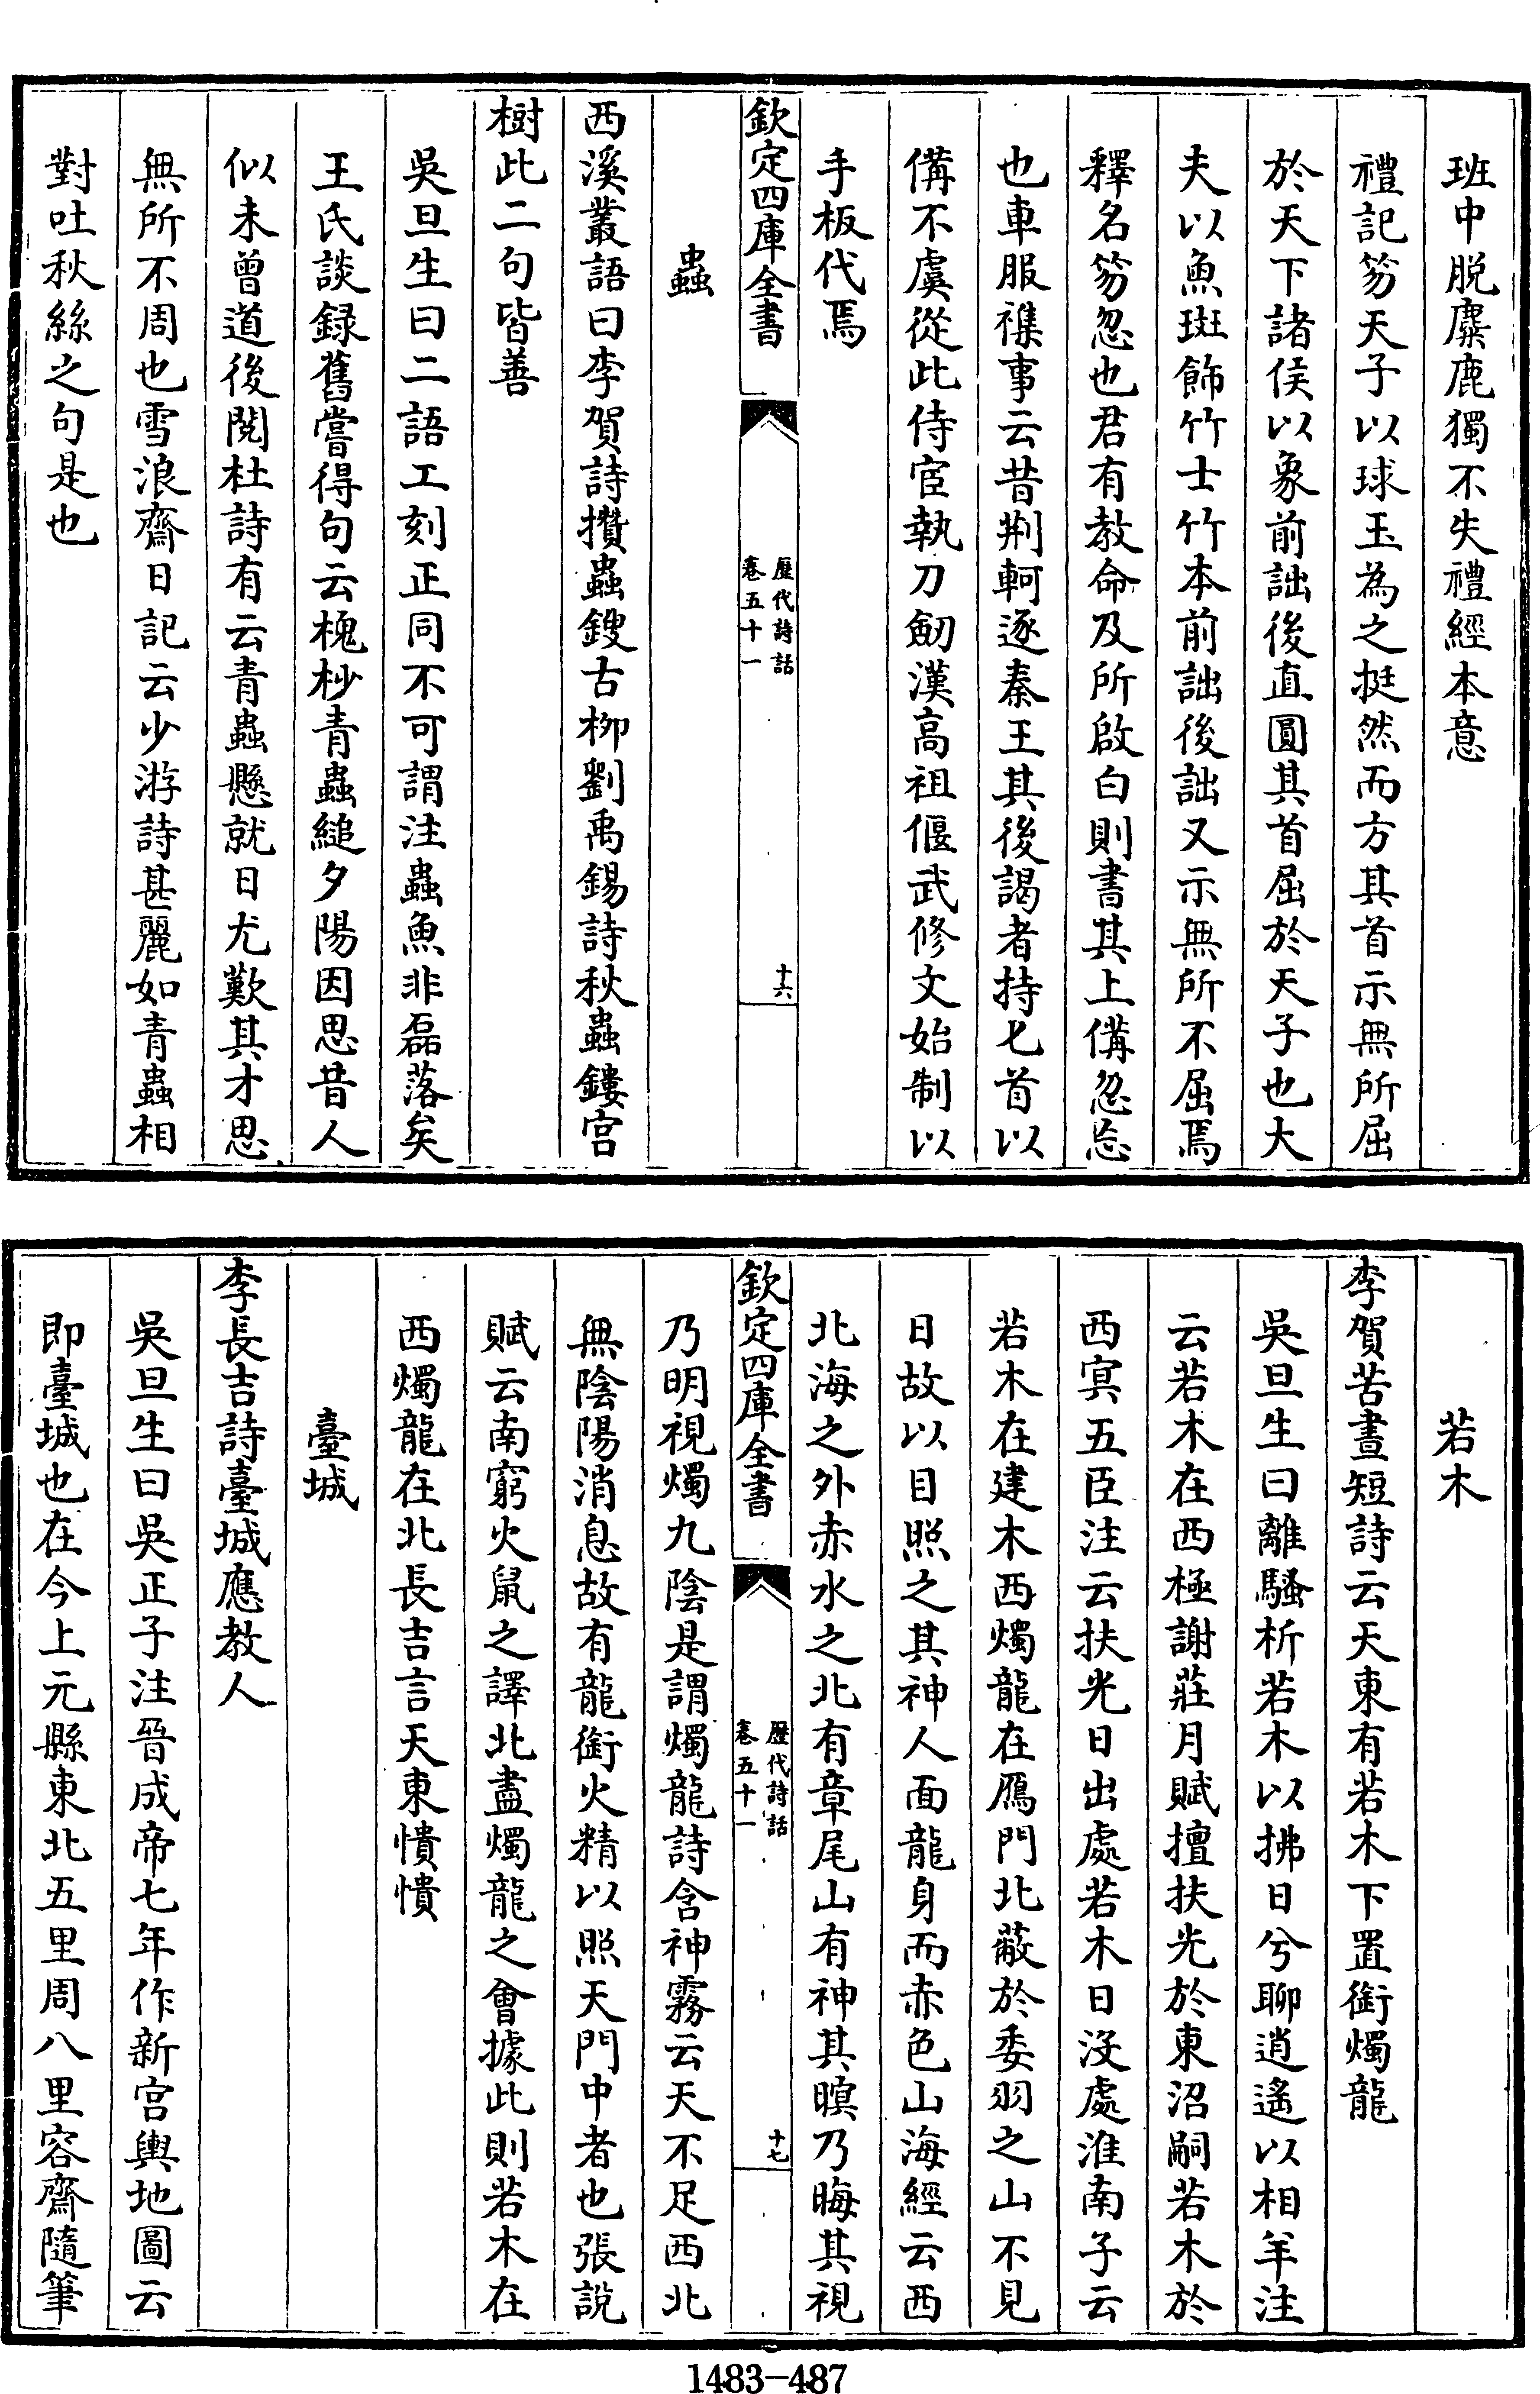 班中脱麋鹿獨不失禮經本意
禮記笏天子以球玉為之挺然而方其首示無所屈
於天下諸侯以象前詘後直圓其首屈於天子也大
夫以魚斑飾竹士竹本前詘後詘又示無所不屈焉
釋名笏忽也君有教命及所啟白則書其上備忽忘
也車服襍事云昔荆軻逐秦王其後謁者持匕首以
備不虞從此侍宦執刀劒漢高祖偃武修文始制以
手板代焉
欽定四庫全書
歴代詩話
卷五十一
十六
蟲
西溪叢語曰李賀詩攢蟲鎪古栁劉禹錫詩秋蟲鏤宫
樹此二句皆善
吳旦生曰二語工刻正同不可謂注蟲魚非磊落矣
王氏談録舊嘗得句云槐杪青蟲縋夕陽因思昔人
似未曾道後閲杜詩有云青蟲懸就日尤歎其才思
無所不周也雪浪齋日記云少游詩甚麗如青蟲相
對吐秋絲之句是也
若木
李賀苦晝短詩云天東有若木下置銜燭龍
吳旦生曰離騷析若木以拂日兮聊逍遙以相羊注
云若木在西極謝莊月賦擅扶光於東沼嗣若木於
西冥五臣注云扶光日出處若木日沒處淮南子云
若木在建木西燭龍在鴈門北蔽於委羽之山不見
日故以目照之其神人面龍身而赤色山海經云西
北海之外赤水之北有章尾山有神其瞑乃晦其視
欽定四庫全書
歴代詩話
卷五十一
十七
乃明視燭九陰是謂燭龍詩含神霧云天不足西北
無陰陽消息故有龍銜火精以照天門中者也張說
賦云南窮火鼠之譯北盡燭龍之會據此則若木在
西燭龍在北長吉言天東憒憒
臺城
李長吉詩臺城應教人
吳旦生曰吳正子注晉成帝七年作新宫輿地圖云
即臺城也在今上元縣東北五里周八里容齋隨筆
1483-487